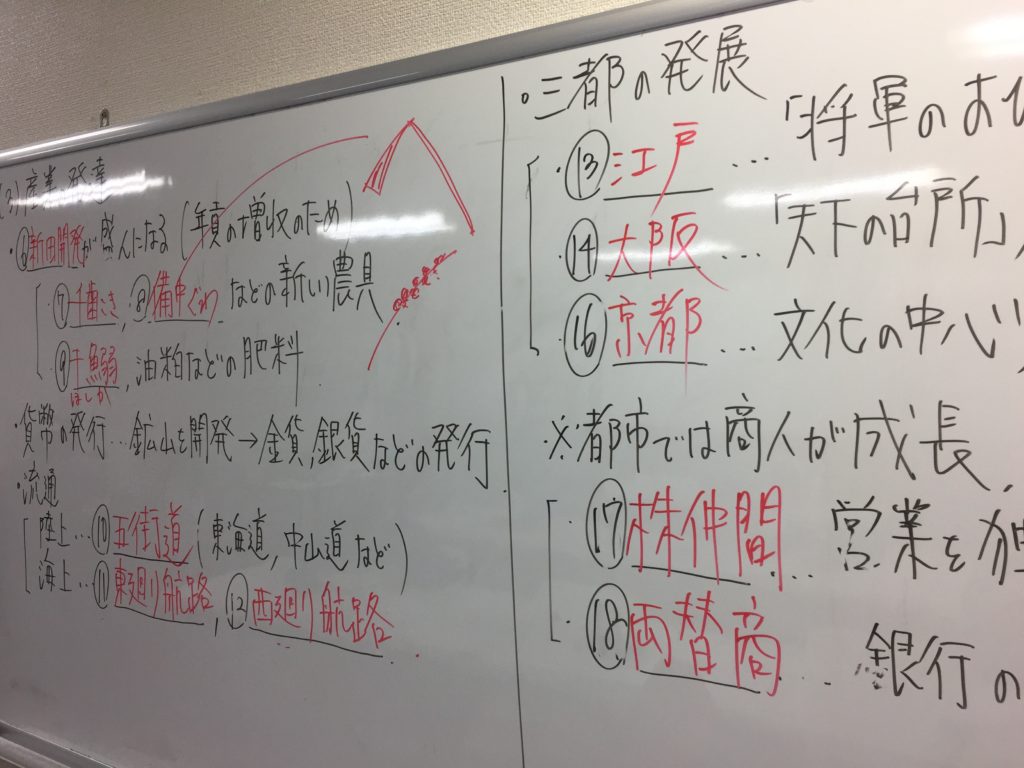 (3)産業の発達
・⑥新田開発が盛んになる(年貢の増収のため)
・⑦千歯こき,⑧備中ぐわなどの新しい農具
・⑨干鰯,油粕などの肥料
ほしか
・貨幣の発行…鉱山を開発→金貨,銀貨などの発行
・流通
陸上…⑩五街道(東海道,中山道など)
海上…⑪東廻り航路,⑫西廻り航路
。三都の発展
・⑬江戸…「将軍のお
・⑭大阪…「天下の台所」
・⑯京都…文化の中心
・※都市では商人が成長
・⑰株仲間…営業を独
・⑱両替商…銀行の